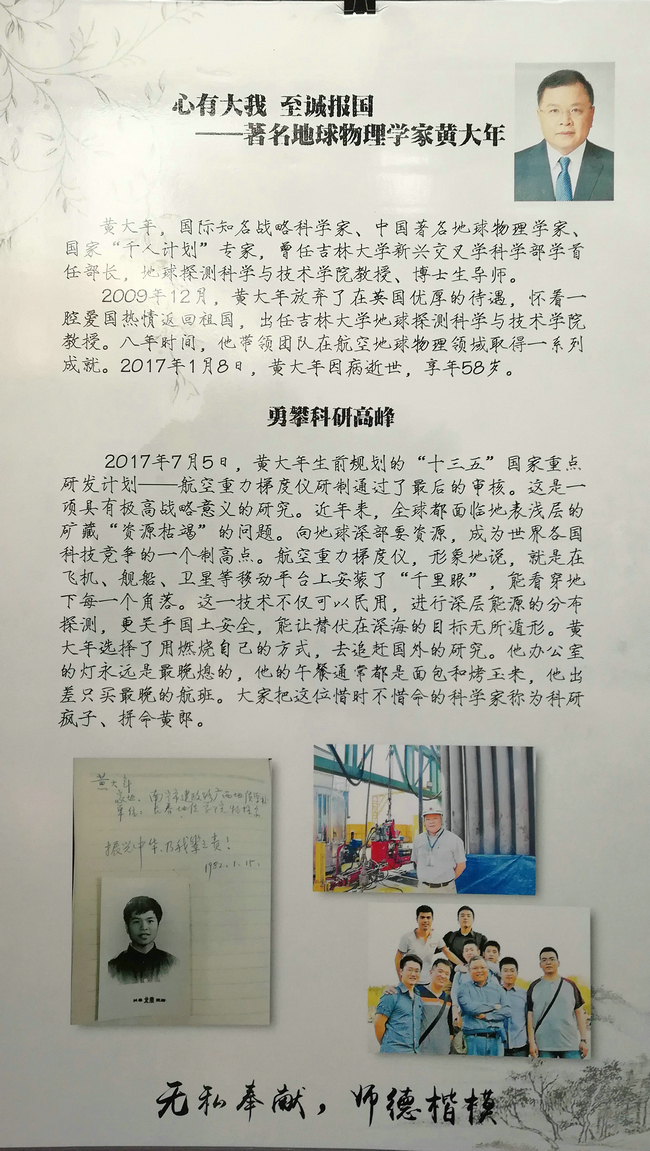 心有大我 至诚报国
——著名地球物理学家黄大年
黄大年，国际知名战略科学家、中国著名地球物理学家、
国家“千人计划”专家，曾任吉林大学新兴交叉学科学部学首
任部长，地球探测科学与技术学院教授、博士生导师。
2009年12月，黄大年放弃了在英国优厚的待遇，怀着一
腔爱国热情返回祖国，出任吉林大学地球探测科学与技术学院
教授。八年时间，他带领团队在航空地球物理领域取得一系列
成就。2017年1月8日，黄大年因病逝世，享年58岁。
勇攀科研高峰
2017年7月5日，黄大年生前规划的“十三五”国家重点
研发计划——航空重力梯度仪研制通过了最后的审核。这是一
项具有极高战略意义的研究。近年来，全球都面临地表浅层的
矿藏“资源枯竭”的问题。向地球深部要资源，成为世界各国
科技竞争的一个制高点。航空重力梯度仪，形象地说，就是在
飞机、舰船、卫星等移动平台上安装了“千里眼”，能看穿地
下每一个角落。这一技术不仅可以民用，进行深层能源的分布
探测，更关乎国土安全，能让潜伏在深海的目标无所遁形。黄
大年选择了用燃烧自己的方式，去追赶国外的研究。他办公室
的灯永远是最晚熄的，他的午餐通常都是面包和烤玉米，他出
差只买最晚的航班。大家把这位惜时不惜命的科学家称为科研
疯子、拼命黄郎。
黄大年
振兴中华，乃我辈之责！
1982.1.15.
无私奉献，师德楷模